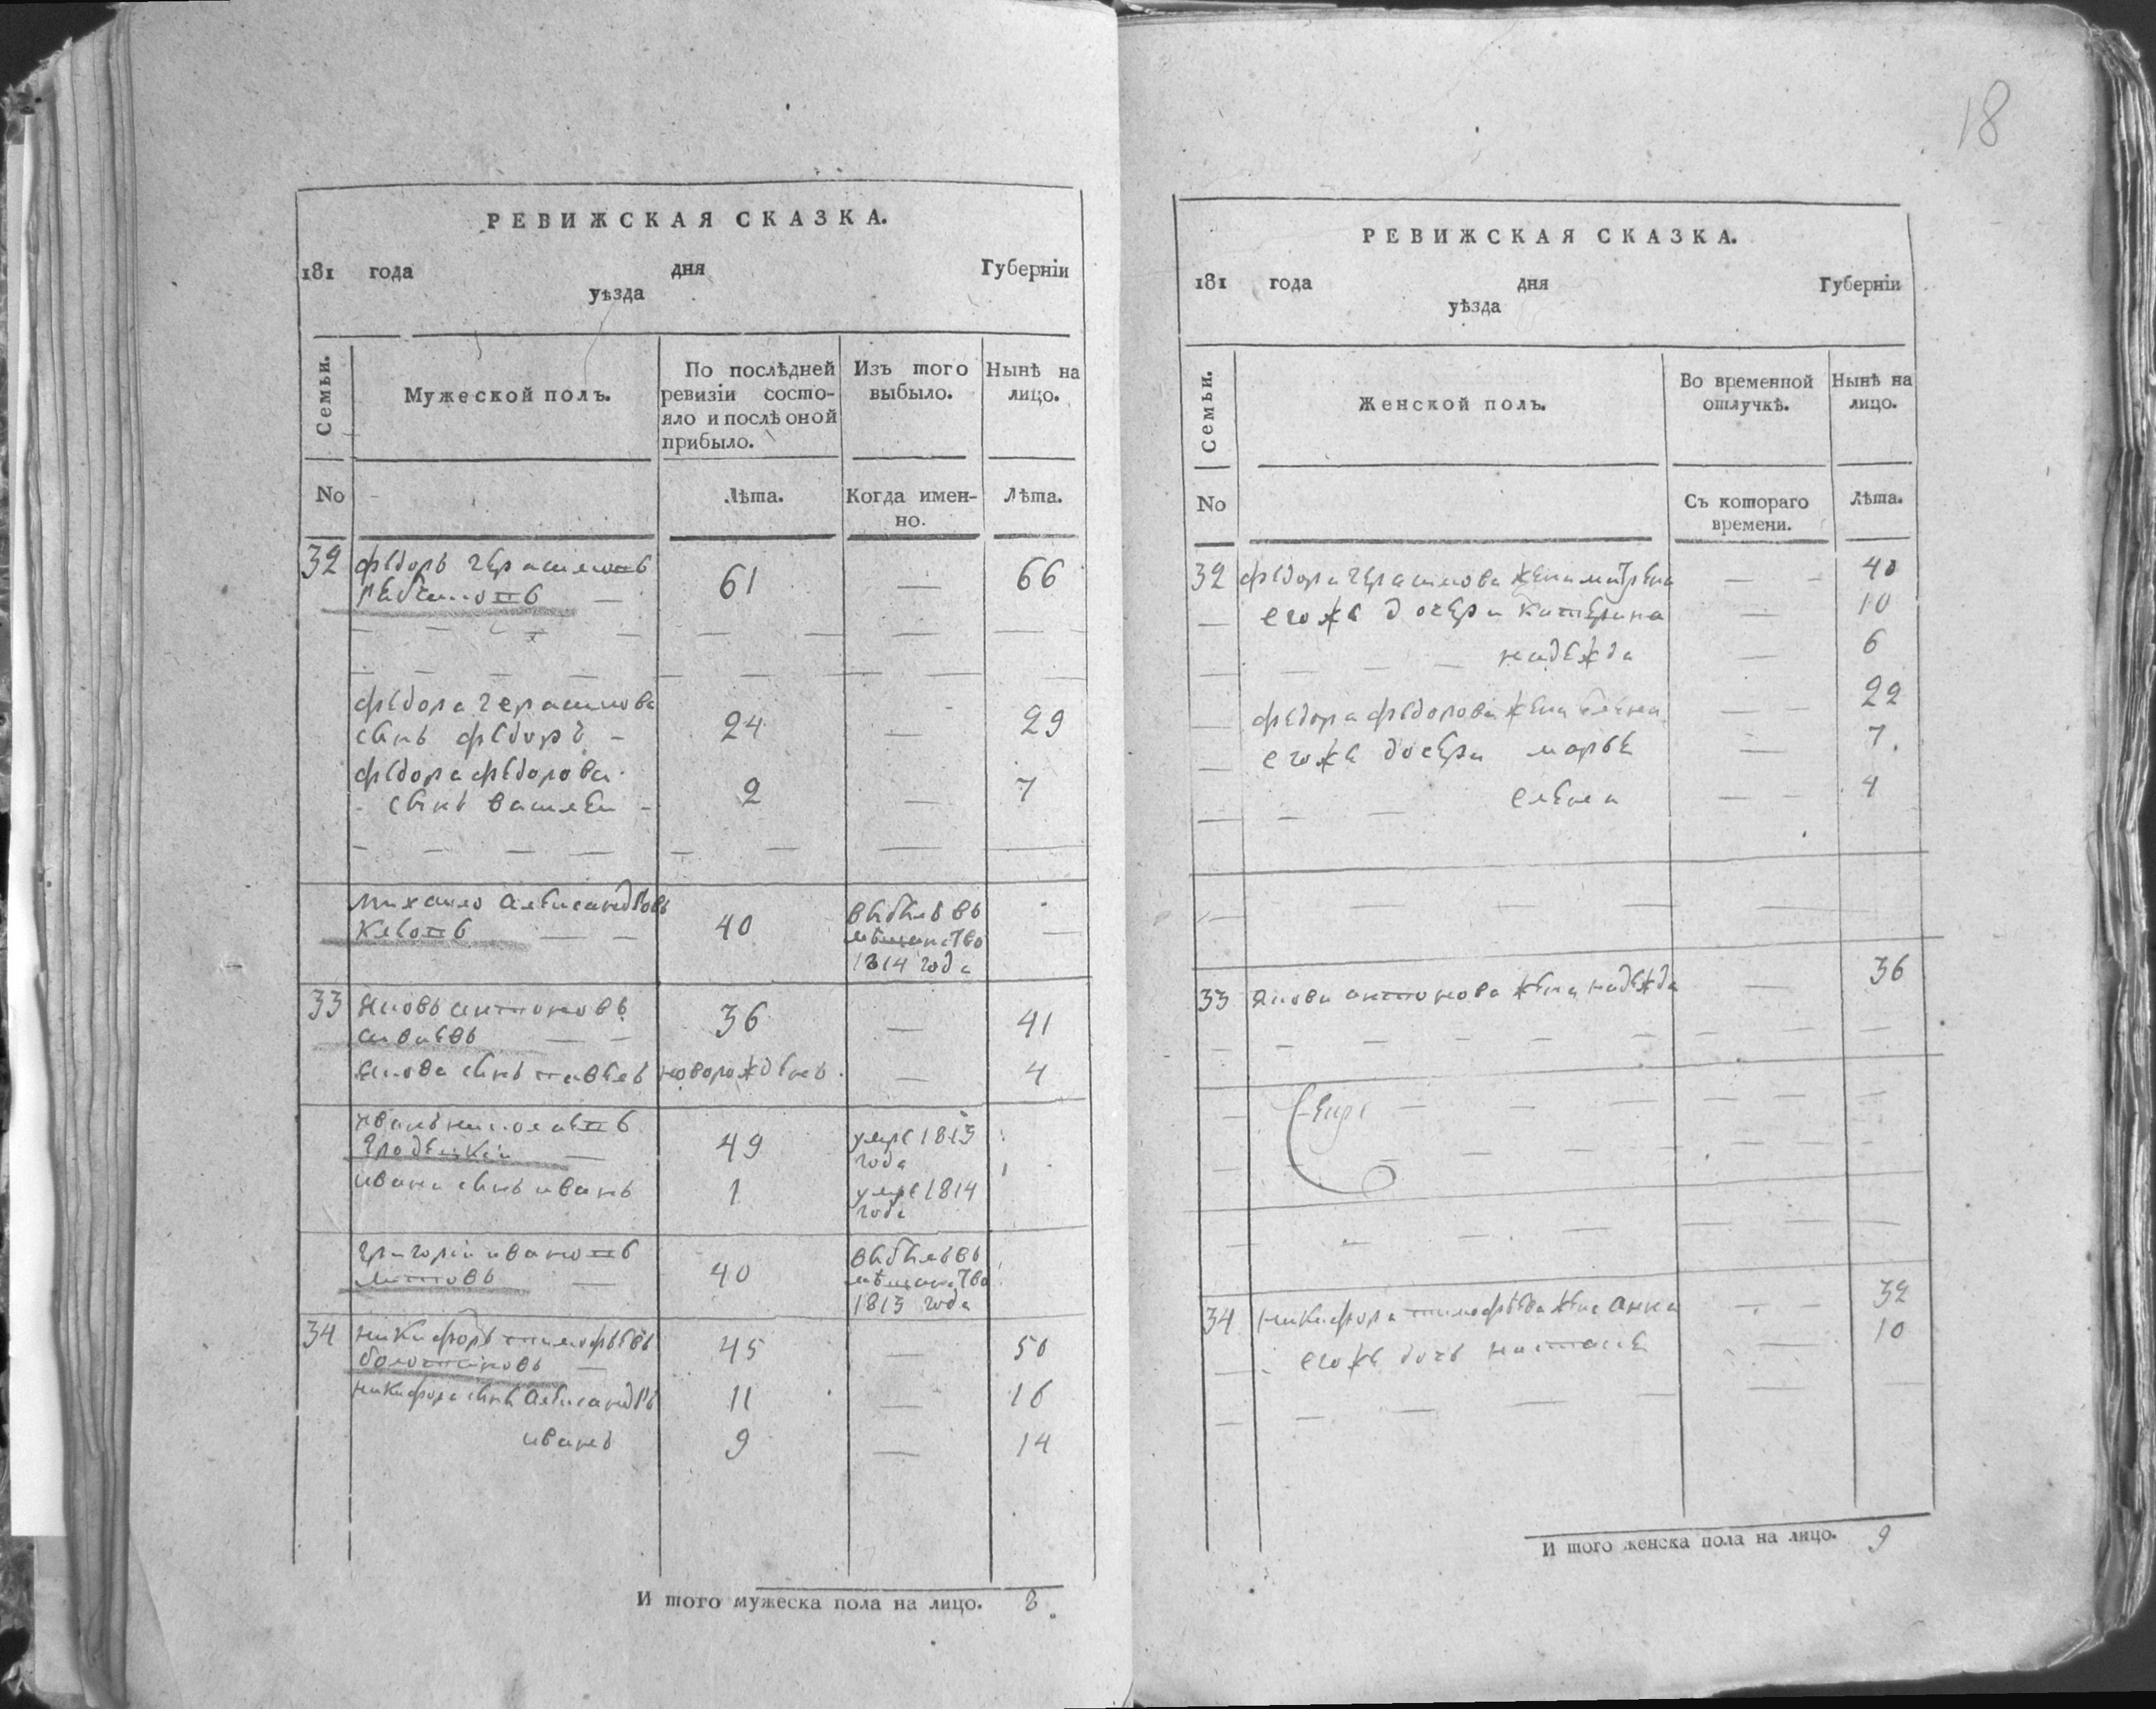 18
РЕВИЖСКАЯ СКАЗКА.
181 года дня Губерніи
уѣзда
Семьи. Мужеской полъ. По послѣдней ревизіи состояло и послѣ оной прибыло. Изъ того выбыло. Нынѣ на лицо.
No Лѣта. Когда именно. Лѣта.
32 Федоръ Герасимовъ
61 — 66
Федора Герасимова
сынъ Федоръ - 24 — 29
Федора Федорова
сынъ Василей - 2 — 7
Михайло Александровъ
40 выбылъ въ мѣщанство 1814 года —
33 Яковъ Антоновъ
36 — 41
Якова сынъ Павелъ новорожденъ — 4
Иванъ
Гродецкій 49 умре 1813 года
Ивана сынъ Иванъ 1 умре 1814 года
Григорій Ивановъ
40 выбылъ въ мѣщанство 1813 года
34 Никифоръ Тимофѣевъ
45 — 50
Никифора сынъ Александръ 11 — 16
Иванъ 9 — 14
И того мужеска пола на лицо. 8
РЕВИЖСКАЯ СКАЗКА.
181 года дня Губерніи
уѣзда
Семьи. Женской полъ. Во временной отлучкѣ. Нынѣ на лицо.
No Съ котораго времени. Лѣта.
32 Федора Герасимова жена Матрена — 40
его же дочери Катерина — 10
Надежда — 6
Федора Федорова жена — 22
его же дочери Марье — 7
Елена — 4
33 Якова Антонова жена Надежда — 36
34 Никифора Тимофѣева жена Анна — 32
его же дочь Настасе — 10
И того женска пола на лицо. 9